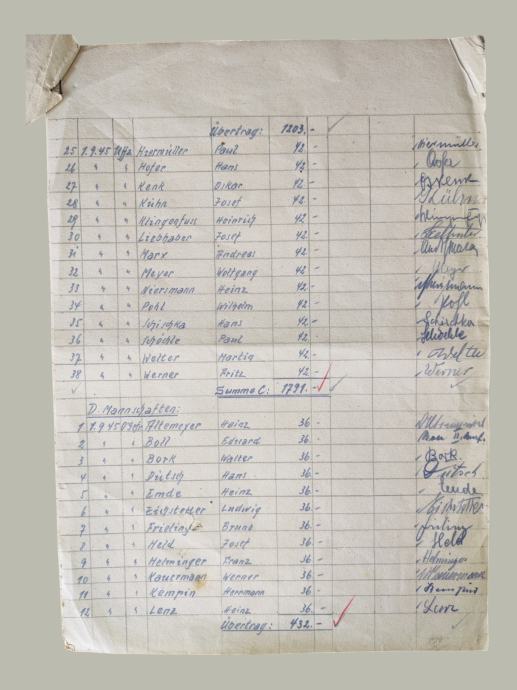 Übertrag: 1203.-
25 1.9.45 Uffz Hezmüller Paul 42.-
26 " " Hofer Hans 42.- Hofer
27 " " Kenk Oskar 42.- Kenk
28 " " Kühn Josef 42.- Kühn
29 " " Klingenfuss Heinrich 42.-
30 " " Liebhaber Josef 42.-
31 " " Marx Andreas 42.-
32 " " Meyer Wolfgang 42.- Meyer
33 " " Niersmann Heinz 42.- Niersmann
34 " " Pohl Wilhelm 42.- Pohl
35 " " Schischka Hans 42.- Schischka
36 " " Schöchle Paul 42.- Schöchle
37 " " Welter Martin 42.- Welter
38 " " Werner Fritz 42.- Werner
Summe C: 1791.-
D. Mannschaften:
1 1.9.45 Altemeyer Heinz 36.-
2 " " Boll Eduard 36.-
3 " " Bork Walter 36.- Bork
4 " " Dütsch Hans 36.- Dütsch
5 " " Emde Heinz 36.- Emde
6 " " Ludwig 36.-
7 " " Frieling Bruno 36.- Frieling
8 " " Held Josef 36.- Held
9 " " Helminger Franz 36.- Helminger
10 " " Kauermann Werner 36.- Kauermann
11 " " Kempin Herrmann 36.-
12 " " Lenz Heinz 36.- Lenz
Übertrag: 432.-